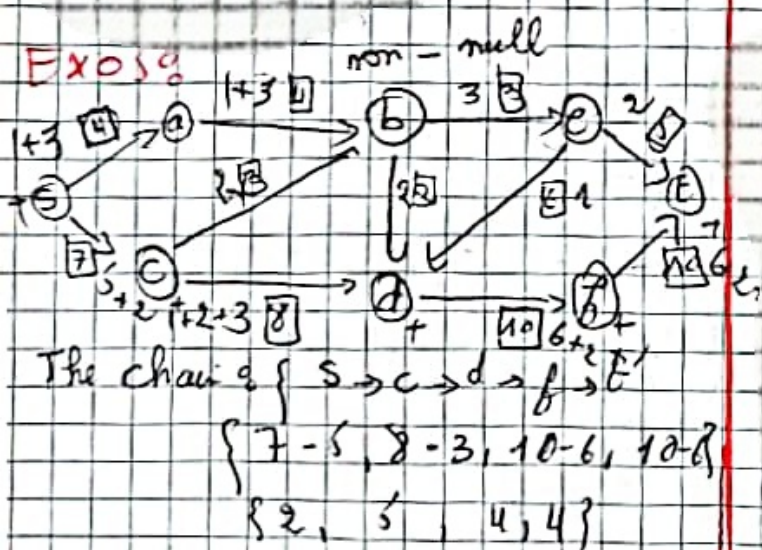 Exo19
non - null
1+3 [4] a 1+3 [4] b 3 [3] e 2
S 2 [3] 2 [2] 1 t
[7] 5 +2 c 1+2+3 [8] d + [10] 6+2 f + 6
The chain { S → c → d → f → t
{ 7 - 5, 8 - 3, 10-6, 10-6}
{ 2, 5, 4, 4}